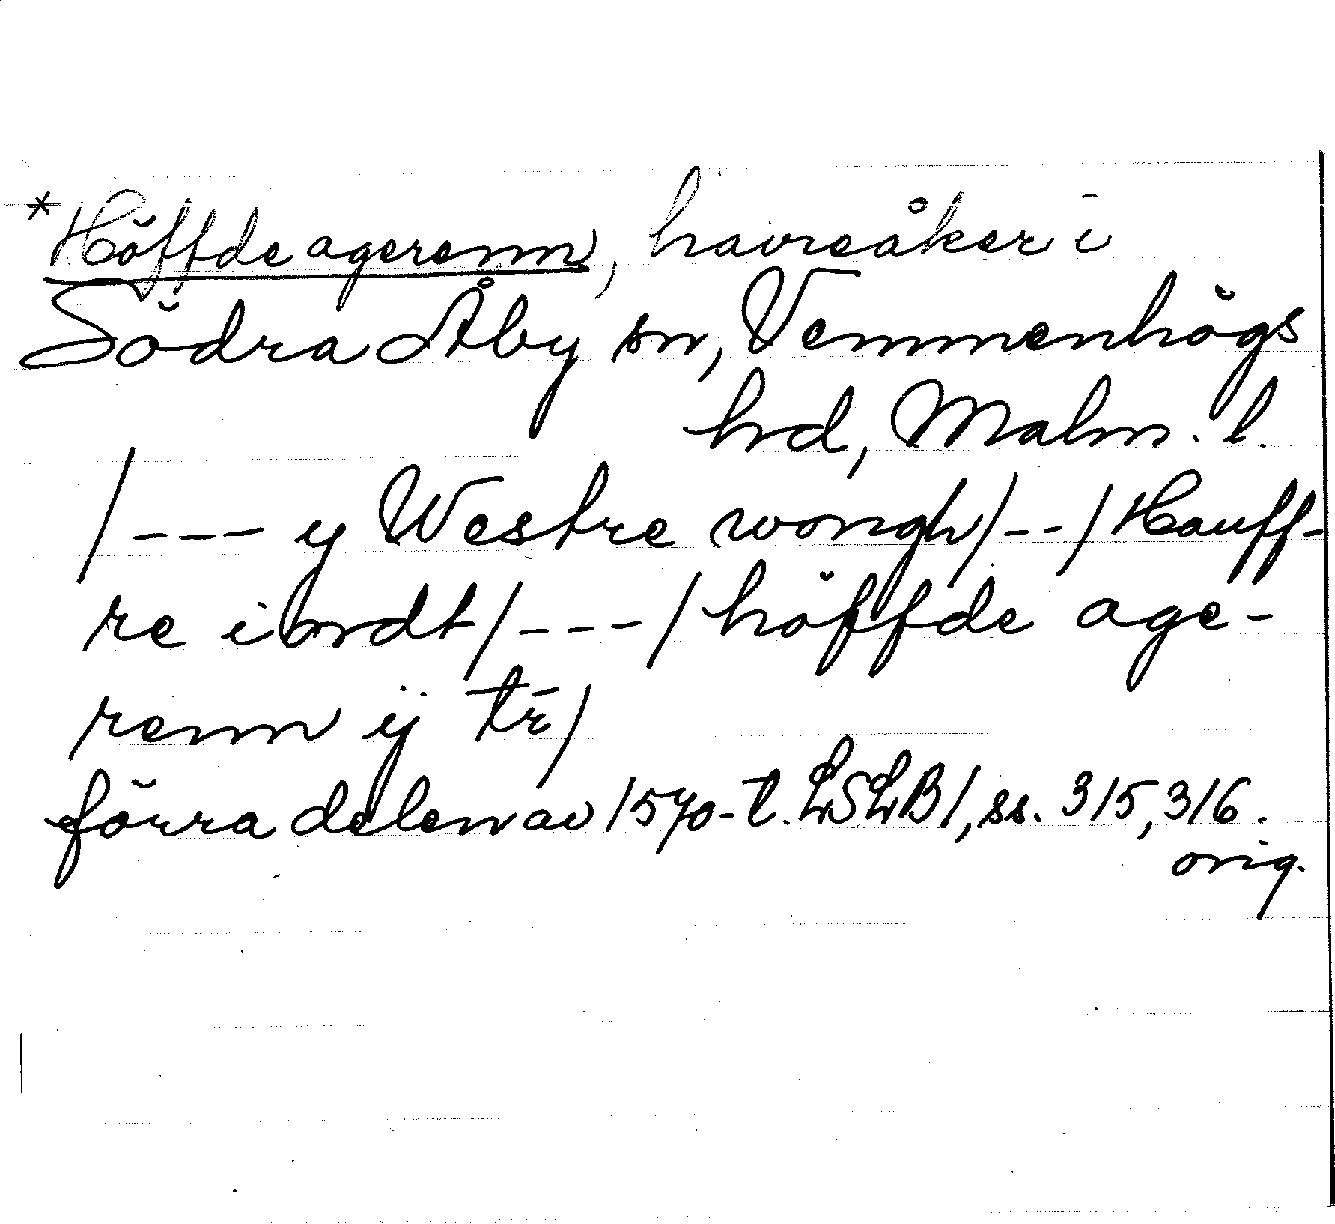 *Höffde agerenn, havreåker i
Södra Åby sn, Vemmenhögs
hd, Malm. l.
/--- y Westre wongh/--/Hauff-
re iordt/---/höffde age-
renn ij tr̄/
förra delen av 1570-t. LSLB1, ss. 315, 316.
orig.